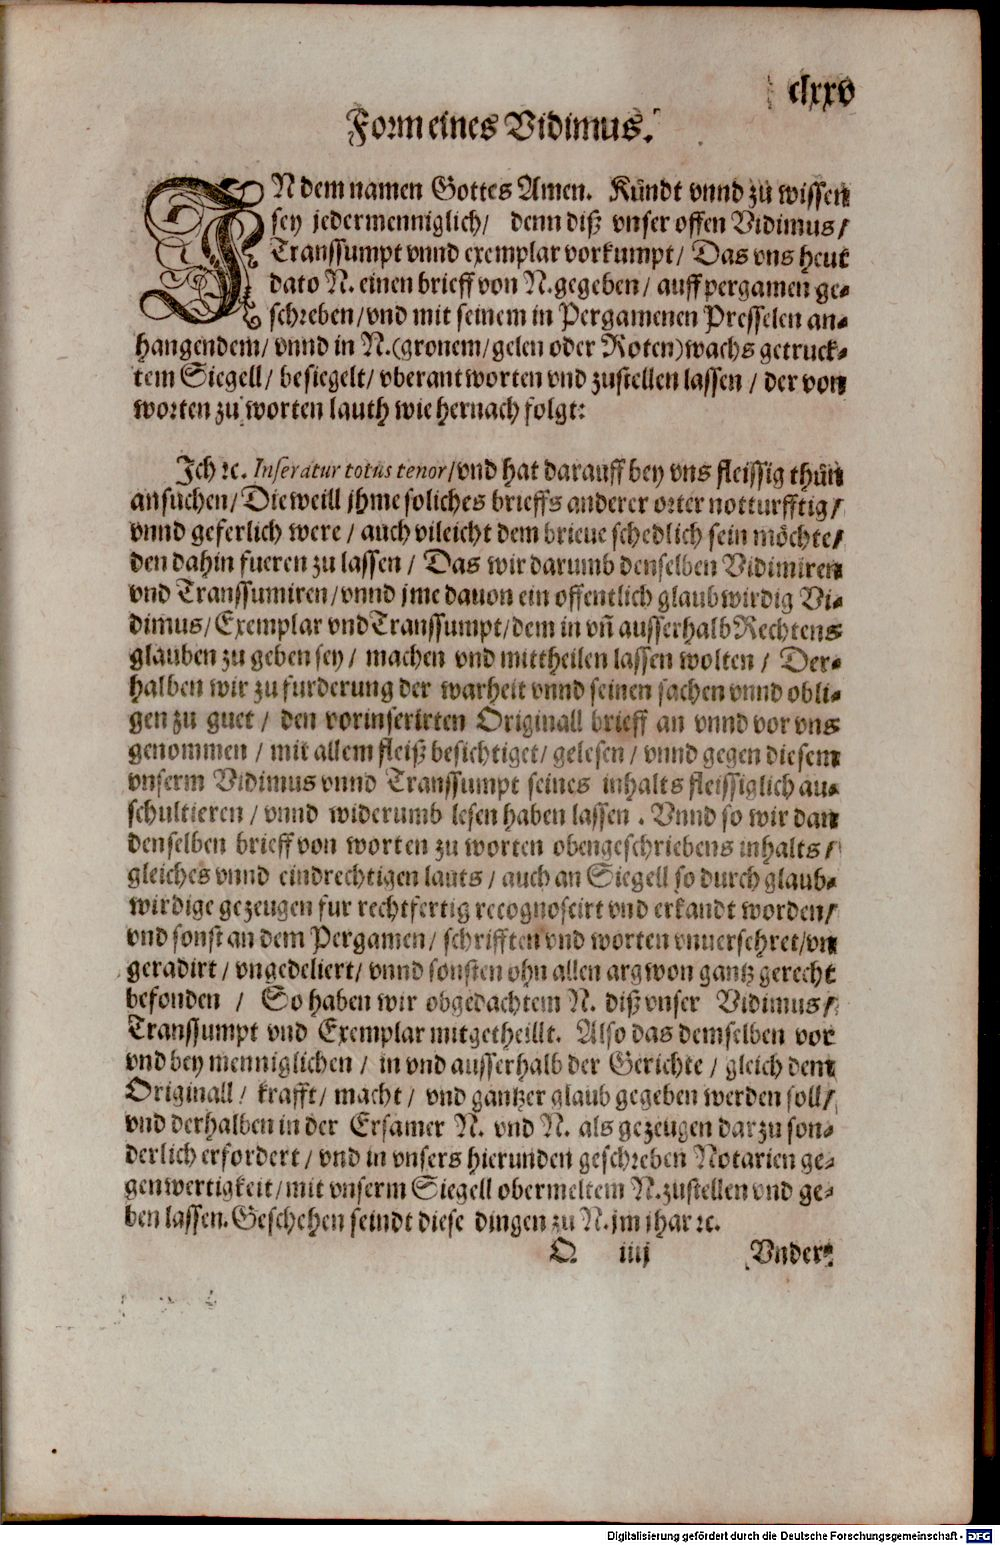 clxxv
Form eines Vidimus.
IN dem namen Gottes Amen. Kündt vnnd zu wissen
sey jedermenniglich/ denn diß vnser offen Vidimus/
Transsumpt vnnd exemplar vorkumpt/ Das vns heut
dato N. einen brieff von N. gegeben/ auff pergamen ge-
schreben/ vnd mit seinem in Pergamenen Presselen an-
hangendem/ vnnd in N. (gronem/ gelen oder Roten) wachs getruck-
tem Siegell/ besiegelt/ vberantworten vnd zustellen lassen/ der von
worten zu worten lauth wie hernach folgt:
Ich ꝛc. Inseratur totus tenor/ vnd hat darauff bey vns fleissig thün
ansuchen/ Die weill jhme soliches brieffs anderer orter notturfftig/
vnnd geferlich were/ auch vileicht dem brieue schedlich sein möchte/
den dahin fueren zu lassen/ Das wir darumb denselben Vidimiren
vnd Transsumiren/ vnnd jme dauon ein offentlich glaubwirdig Vi-
dimus/ Exemplar vnd Transsumpt/ dem in vñ ausserhalb Rechtens
glauben zu geben sey/ machen vnd mittheilen lassen wolten/ Der-
halben wir zu furderung der warheit vnnd seinen sachen vnnd obli-
gen zu guet/ den vorinserirten Originall brieff an vnnd vor vns
genommen/ mit allem fleiß besichtiget/ gelesen/ vnnd gegen diesem
vnserm Vidimus vnnd Transsumpt seines inhalts fleissiglich au-
schultieren/ vnnd widerumb lesen haben lassen. Vnnd so wir dan
denselben brieff von worten zu worten obengeschriebens inhalts/
gleiches vnnd eindrechtigen lauts/ auch an Siegell so durch glaub-
wirdige gezeugen fur rechtfertig recognoscirt vnd erkandt worden/
vnd sonst an dem Pergamen/ schrifften vnd worten vnuersehret/ vn
geradirt/ vngedeliert/ vnnd sonsten ohn allen argwon gantz gerecht
befonden/ So haben wir obgedachtem N. diß vnser Vidimus/
Transsumpt vnd Exemplar mitgetheillt. Also das demselben vor
vnd bey menniglichen/ in vnd ausserhalb der Gerichte/ gleich dem
Originall/ krafft/ macht/ vnd gantzer glaub gegeben werden soll/
vnd derhalben in der Ersamer N. vnd N. als gezeugen darzu son-
derlich erfordert/ vnd in vnsers hierunden geschreben Notarien ge-
genwertigkeit/ mit vnserm Siegell obermeltem N. zustellen vnd ge-
ben lassen. Geschehen seindt diese dingen zu N. jm jhar ꝛc.
O iiij Vnder-
Digitalisierung gefördert durch die Deutsche Forschungsgemeinschaft - DFG